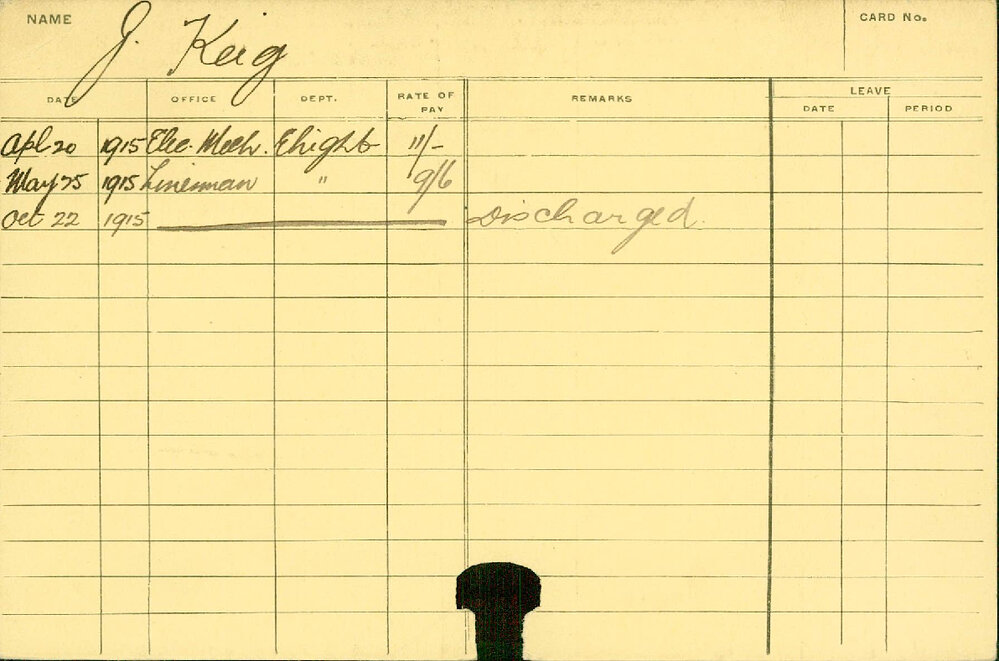 NAME J. Keig CARD No.
DATE OFFICE DEPT. RATE OF PAY REMARKS LEAVE
DATE PERIOD
Apl 20 1915 Elec. Mech. Elight 11/-
May 25 1915 Lineman " 9/6
Oct 22 1915 Discharged.